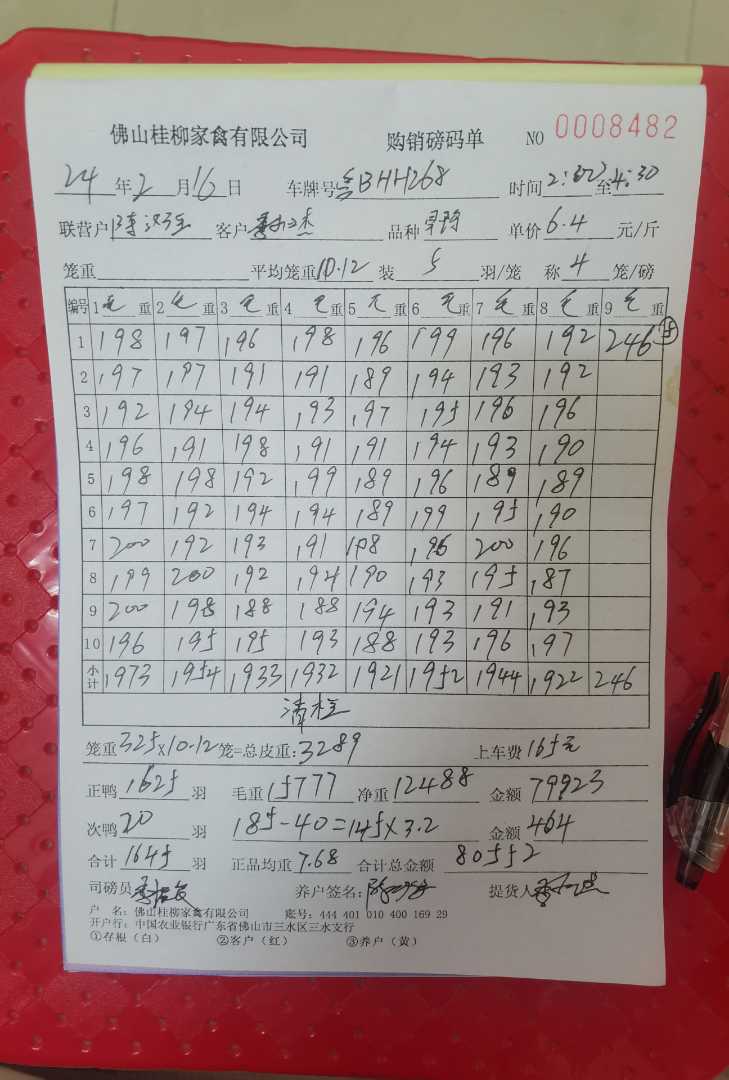 佛山桂柳家禽有限公司 购销磅码单 NO 0008482
24年2月16日 车牌号 BHH268 时间2:00至4:30
联营户 客户 杰 品种 单价6.4元/斤
笼重 平均笼重10.12装5羽/笼 称4笼/磅
编号 1毛重 2毛重 3毛重 4毛重 5毛重 6毛重 7毛重 8毛重 9毛重
1 198 197 196 198 196 199 196 192 246 ⑤
2 197 197 191 191 189 194 193 192
3 192 194 194 193 197 195 196 196
4 196 191 198 191 191 194 193 190
5 198 198 192 199 189 196 189 189
6 197 192 194 194 189 199 195 190
7 200 192 193 191 198 196 200 196
8 199 200 192 194 190 193 195 187
9 200 198 188 188 194 193 191 193
10 196 195 195 193 188 193 196 197
小计 1973 1954 1933 1932 1921 1952 1944 1922 246
清栏
笼重325×10.12笼=总皮重:3289 上车费165元
正鸭1625羽 毛重15777净重12488 金额79923
次鸭20羽 185-40=145×3.2 金额464
合计1645羽 正品均重7.68 合计总金额80552
司磅员 养户签名: 提货人
户 名:佛山桂柳家禽有限公司 账号:444 401 010 400 169 29
开户行:中国农业银行广东省佛山市三水区三水支行
①存根(白) ②客户(红) ③养户(黄)